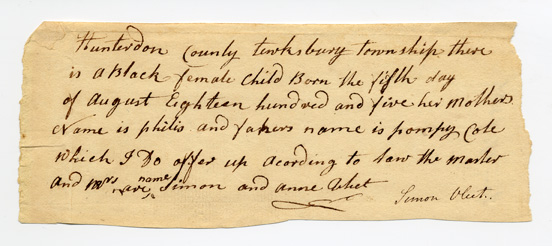 Hunterdon County Tewksbury township there
is a Black female Child Born the fifth day
of august Eighteen hundred and five her mothers
Name is philis and fahers name is pompy Cole
which I Do offer up acording to Law the master
and mrs name are Simon and anne Vliet
Simon Vliet.